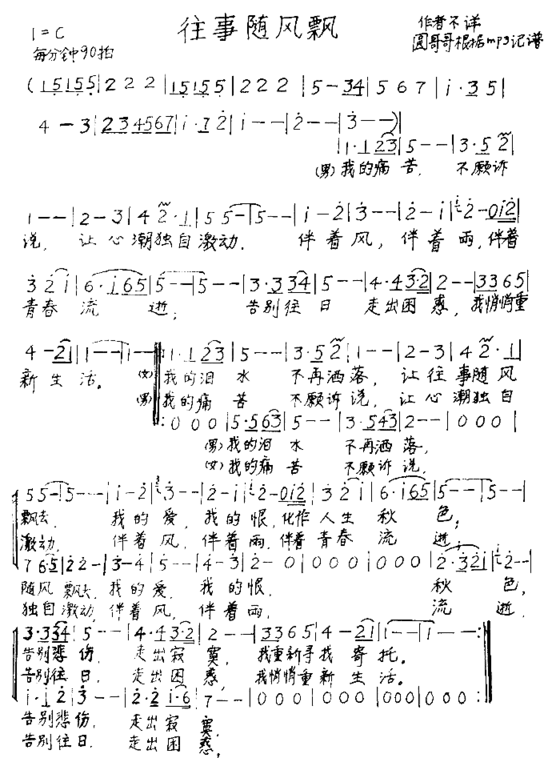 往事随风飘
1=C
每分钟90拍
作者不详
圆哥哥根据mp3记谱
(15155|222|15155|222|5-34|567|i·35|
4-3|234567|i·72|i--|2--|3--)|
|1·123|5--|3·52|
(男)我的痛苦. 不愿诉
1--|2-3|42·1|55-|5--|i-2|3--|2-i|2-0i2|
说, 让心潮独自激动. 伴着风, 伴着雨, 伴着
32i|6·i65|5--|5--|3·334|5--|4·432|2--|3365|
青春流逝, 告别往日 走出困惑, 我悄悄重
4-21|1--|1--|1·123|5--|3·52|1--|2-3|42·1|
新生活。 (女)我的泪水 不再洒落, 让往事随风
(男)我的痛苦 不愿诉说, 让心潮独自
:000|5·563|5--|3·543|2--|000|
(男)我的泪水 不再洒落,
(女)我的痛苦 不愿诉说,
55-|5--|i-2|3--|2-i|2-0i2|32i|6·i65|5--|5--|
飘去. 我的爱, 我的恨, 化作人生秋色,
激动. 伴着风, 伴着雨, 伴着青春流逝,
765|22-|3-4|5--|4-3|2-0|000|000|000|2·32i|2--|
随风飘去, 我的爱, 我的恨. 秋色,
独自激动, 伴着风, 伴着雨, 流逝
3·334|5--|4·432|2--|3365|4-21|1--|1--:|
告别悲伤, 走出寂寞, 我重新寻找寄托。
告别往日, 走出困惑, 我悄悄重新生活。
i·i2|3--|2·2i·6|7--|000|000|000|000:|
告别悲伤, 走出寂寞.
告别往日. 走出困惑,